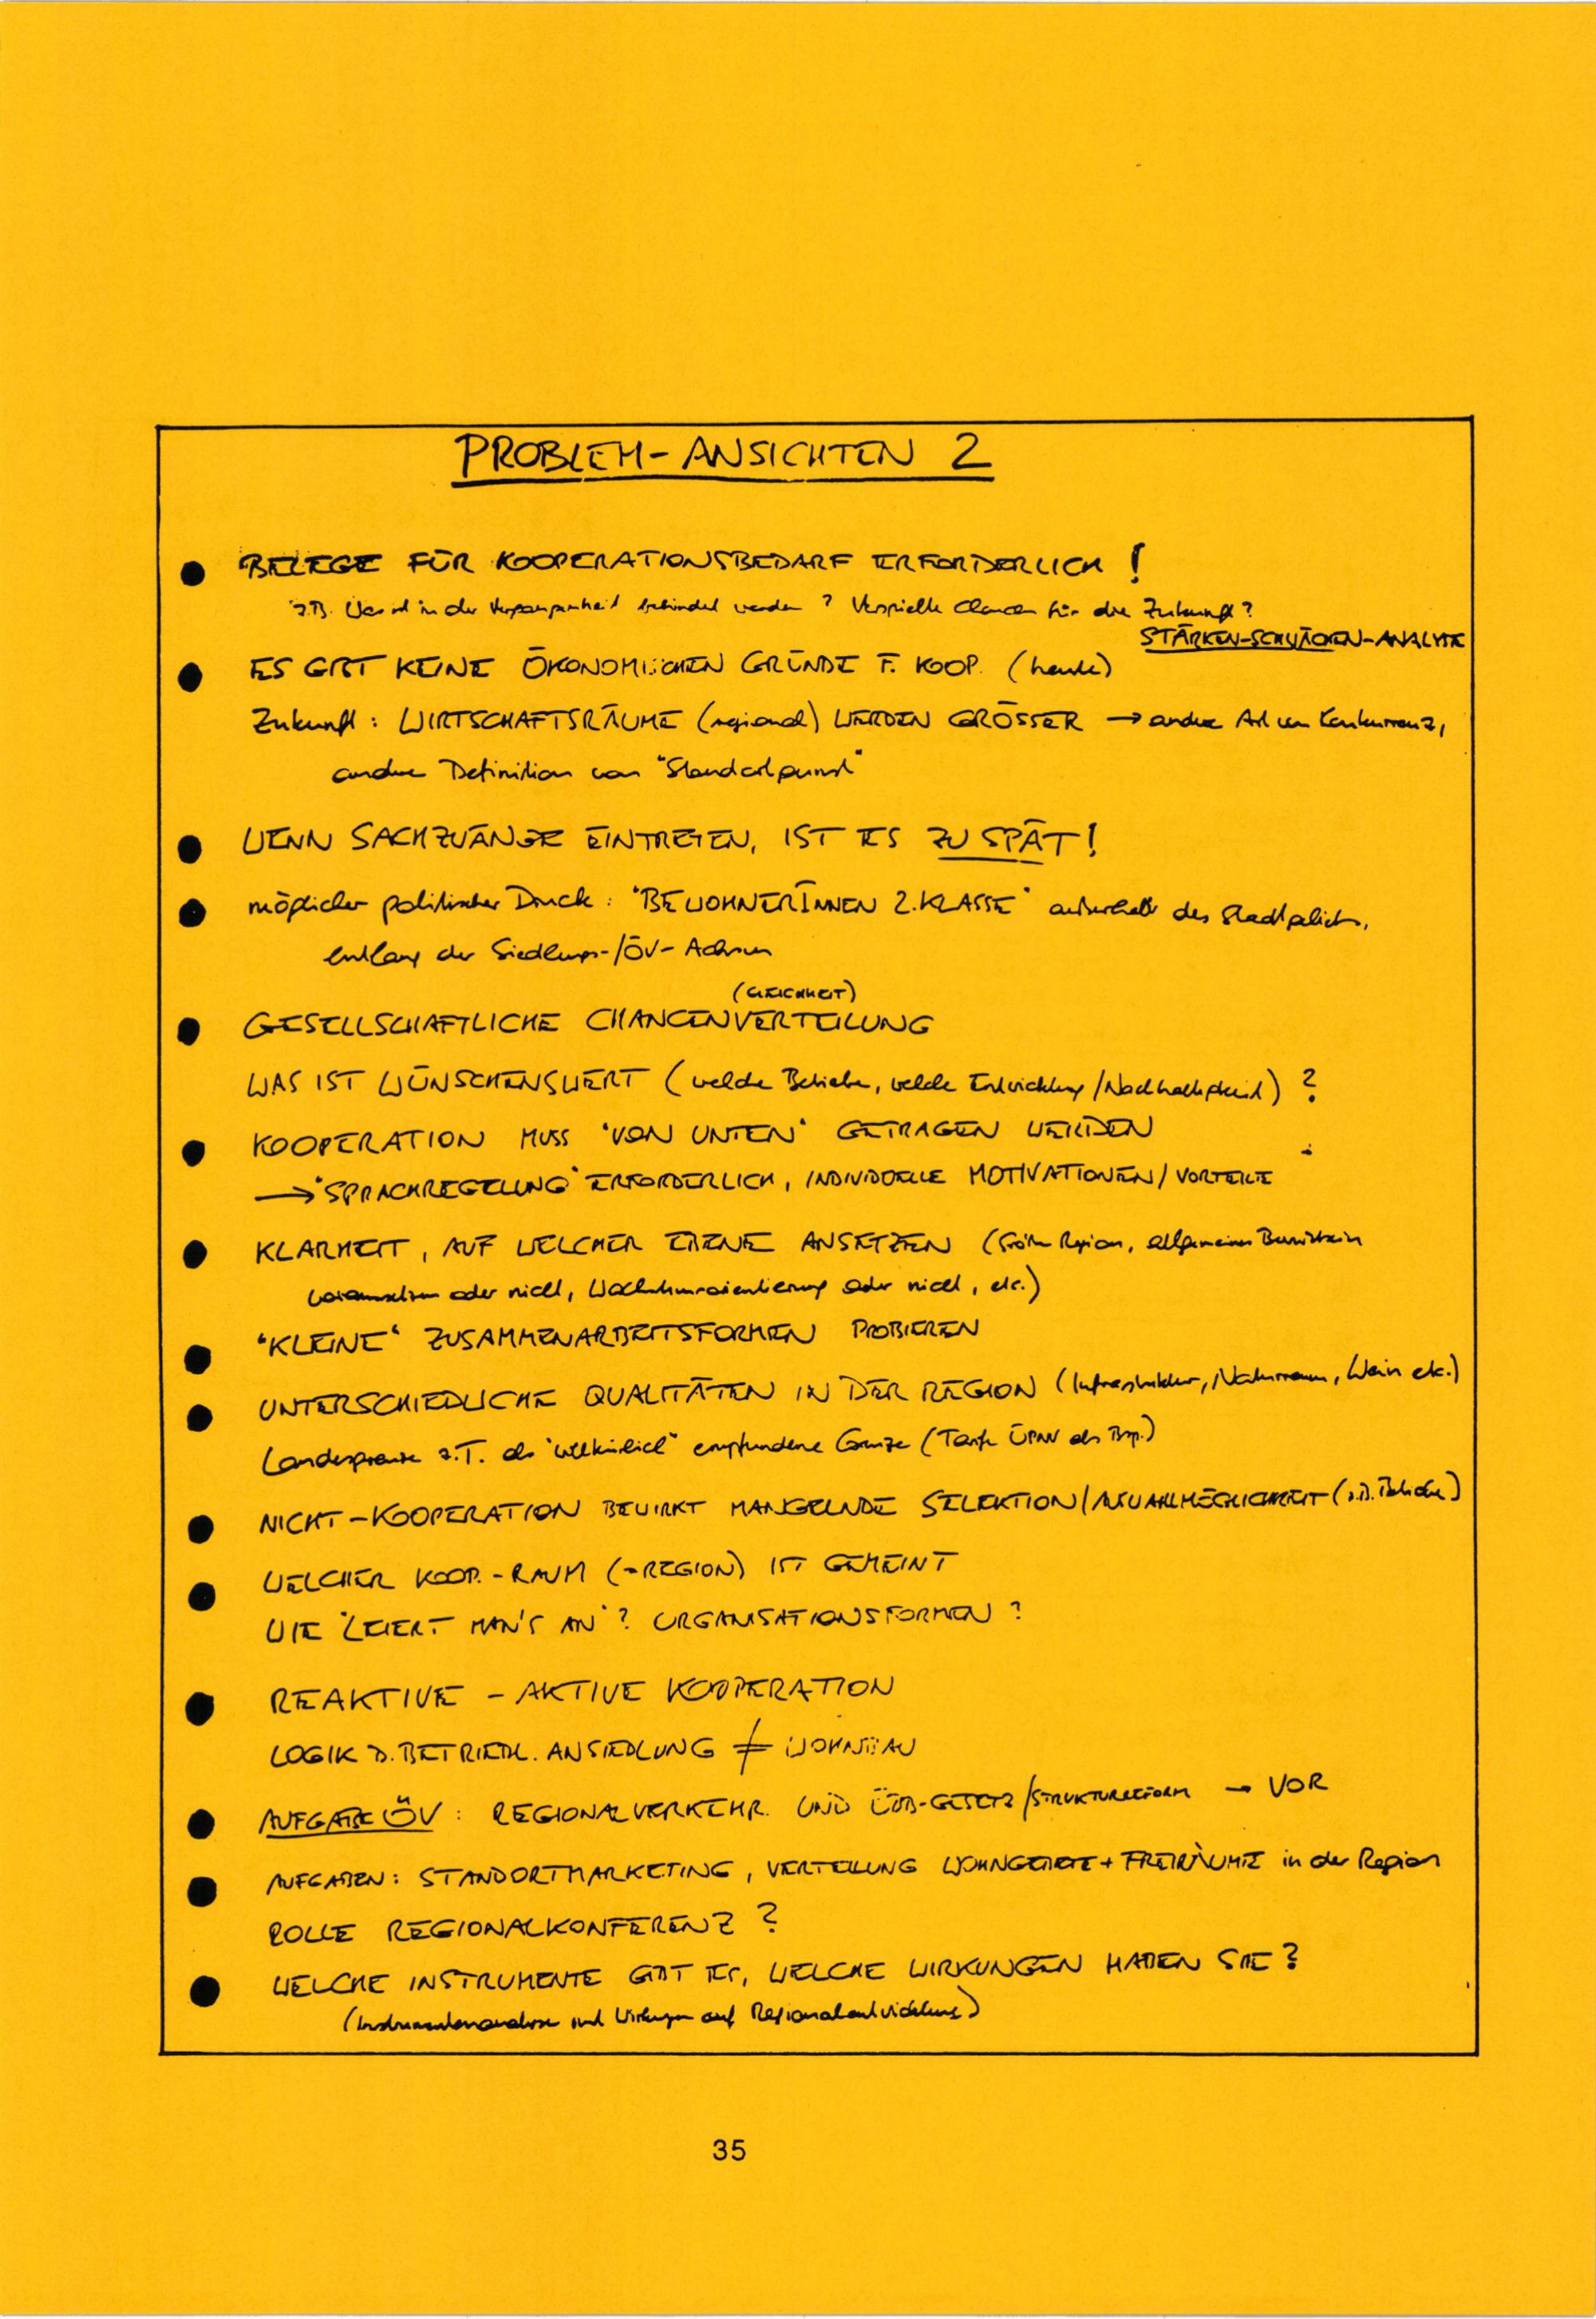 PROBLEM-ANSICHTEN 2
● BELEGE FÜR KOOPERATIONSBEDARF ERFORDERLICH!
z.B. Was ist in der Vergangenheit behindert worden? Verspielte Chancen für die Zukunft?
STÄRKEN-SCHWÄCHEN-ANALYSE
● ES GIBT KEINE ÖKONOMISCHEN GRÜNDE F. KOOP. (heute)
Zukunft: WIRTSCHAFTSRÄUME (regional) WERDEN GRÖSSER → andere Art von Konkurrenz,
andere Definition von "Standortgunst"
● WENN SACHZWÄNGE EINTRETEN, IST ES ZU SPÄT!
● möglicher politischer Druck: "BEWOHNERINNEN 2. KLASSE" außerhalb des Stadtgebiets,
entlang der Siedlungs-/ÖV-Achsen
(GLEICHHEIT)
● GESELLSCHAFTLICHE CHANCENVERTEILUNG
WAS IST WÜNSCHENSWERT (welche Betriebe, welche Entwicklung/Nachhaltigkeit)?
● KOOPERATION MUSS "VON UNTEN" GETRAGEN WERDEN
→ "SPRACHREGELUNG" ERFORDERLICH, INDIVIDUELLE MOTIVATIONEN/VORTEILE
● KLARHEIT, AUF WELCHER EBENE ANSETZEN (Region, allgemeines Bewusstsein
voraussetzen oder nicht, Wachstumsorientierung oder nicht, etc.)
● "KLEINE" ZUSAMMENARBEITSFORMEN PROBIEREN
● UNTERSCHIEDLICHE QUALITÄTEN IN DER REGION (Infrastruktur, Naturraum, Wein etc.)
Landesgrenze z.T. als "willkürlich" empfundene Grenze (Tarife ÖPNV als Bsp.)
● NICHT-KOOPERATION BEWIRKT MANGELNDE SELEKTION/AUSWAHLMÖGLICHKEIT (z.B. Betriebe)
● WELCHER KOOP.-RAUM (-REGION) IST GEMEINT
WIE "LEIERT MAN'S AN"? ORGANISATIONSFORMEN?
● REAKTIVE - AKTIVE KOOPERATION
LOGIK D. BETRIEBL. ANSIEDLUNG ≠ WOHNBAU
● AUFGABE ÖV: REGIONALVERKEHR. UND ÖBB-GESETZ/STRUKTURREFORM → VOR
● AUFGABEN: STANDORTMARKETING, VERTEILUNG WOHNGEBIETE + FREIRÄUME in der Region
ROLLE REGIONALKONFERENZ?
● WELCHE INSTRUMENTE GIBT ES, WELCHE WIRKUNGEN HABEN SIE?
(Instrumentenanalyse und Wirkungen auf Regionalentwicklung)
35